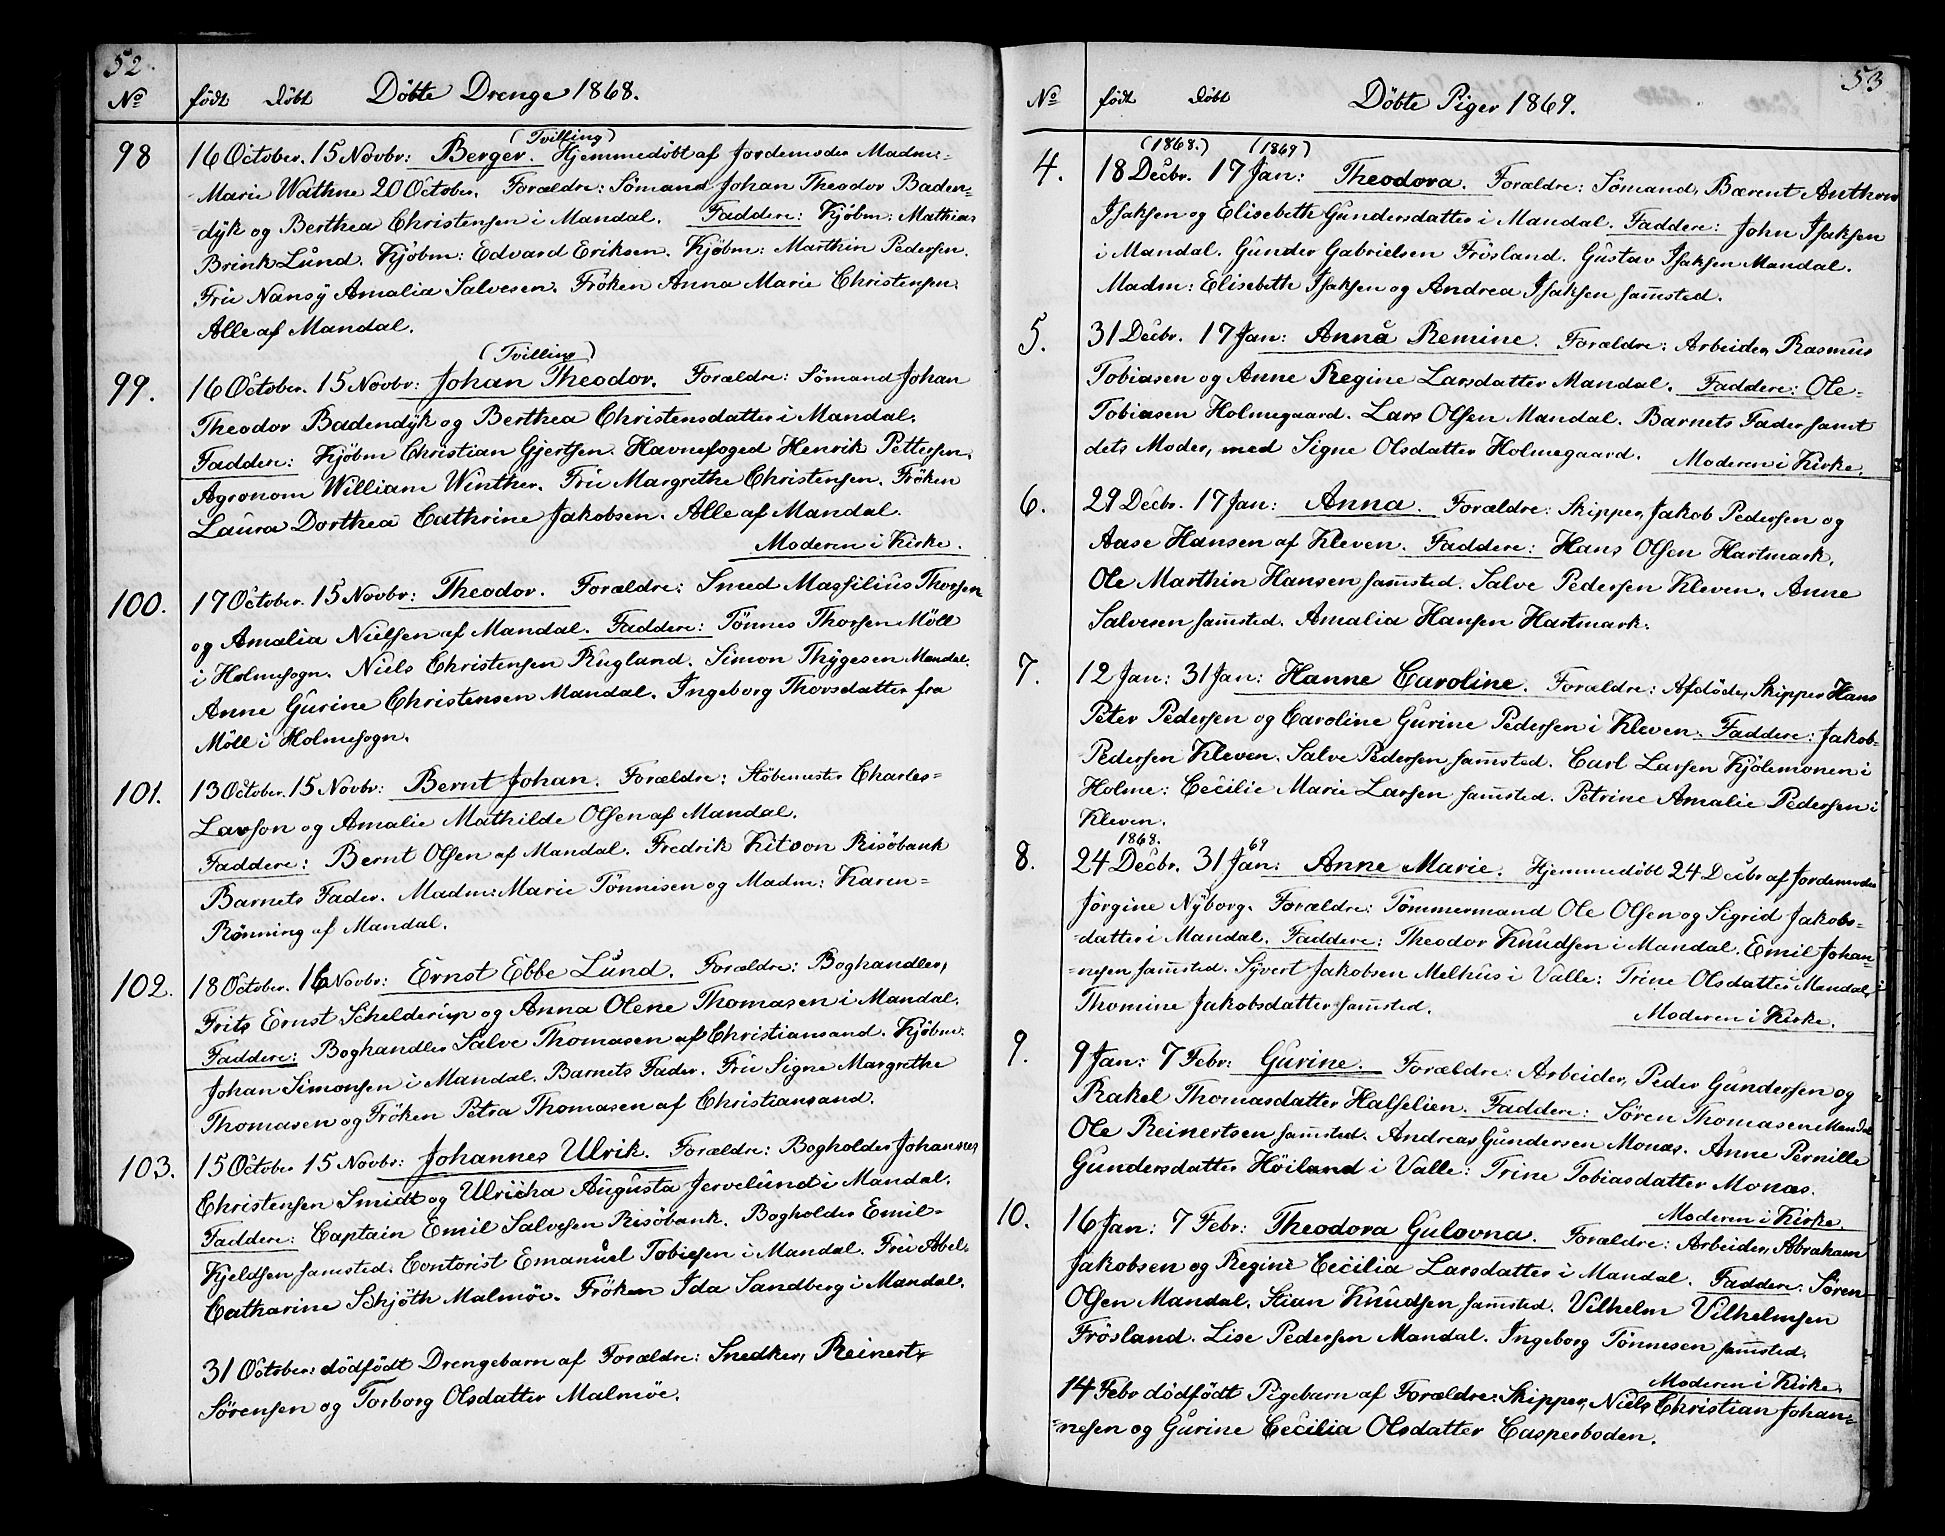 52.
No født döbt Döbte Drenge 1868.
(Tvilling)
98 16 October. 15 Novbr: Berger. Hjemmedöbt af Jordemoder Madm:
Marie Wathne 20 October. Forældre: Sömand Johan Theodor Baden=
=dÿk og Berthea Christensen i Mandal. Faddere: Kjöbm: Mathias
Brink Lund. Kjöbm: Edvard Eriksen. Kjöbm: Marthin Pedersen.
Fru Nansÿ Amalia Salvesen. Fröken Anna Marie Christensen.
Alle af Mandal.
(Tvilling)
99. 16 October. 15 Novbr: Johan Theodor. Forældre: Sömand Johan
Theodor Badendÿk og Berthea Christensdatter i Mandal.
Faddere: Kjöbm Christian Gjertsen. Havnefoged Henrik Pettersen.
Agronom William Winther. Fru Margrethe Christensen. Fröken
Laura Dorthea Cathrine Jakobsen. Alle af Mandal.
Moderen i Kirke.
100. 17 October. 15 Novbr: Theodor. Forældre: Smed Massilius Thorsen
og Amalia Nielsen af Mandal. Faddere: Tönnes Thorsen Möll
i Holmesogn. Niels Christensen Rugland. Simon Thÿgesen Mandal.
Anne Gurine Christensen Mandal. Ingeborg Thorsdatter fra
Möll i Holmesogn.
101. 13 October. 15 Novbr: Bernt Johan. Forældre: Stöbemester Charles=
Larson og Amalie Mathilde Olsen af Mandal.
Faddere: Bernt Olsen af Mandal. Fredrik Kitson Risöbank
Barnets Fader. Madm: Marie Tönnisen og Madm: Karen=
Rönning af Mandal.
102. 18 October. 16 Novbr: Ernst Ebbe Lund. Forældre: Boghandler,
Frits Ernst Schelderup og Anna Olene Thomasen i Mandal.
Faddere: Boghandler Salve Thomasen af Christiansand. Kjöbm:
Johan Simonsen i Mandal. Barnets Fader. Fru Signe Margrethe
Thomasen og Fröken Petra Thomasen af Christiansand.
103. 15 October 15 Novbr: Johannes Ulrik. Forældre: Bogholder Johannes
Christensen Smidt og Ulricha Augusta Jervelund i Mandal.
Faddere: Captain Emil Salvesen Risöbank. Bogholder Emil=
Kjeldsen samsted. Contorist Emanuel Tobiesen i Mandal. Fru Abel=
Catharine Schjöth Malmöe. Fröken Ida Sandberg i Mandal.
31 October: dödfödt Drengebarn af Forældre: Snedker, Reinert=
Sörensen og Torborg Olsdatter Malmöe.
53
No födt döbt Döbte Piger 1869.
(1868.) (1869)
4. 18 Decbr. 17 Jan: Theodora. Forældre: Sömand, Bærent Anthon
Isaksen og Elisebeth Gundersdatter i Mandal. Faddere: John Isaksen
i Mandal. Gunder Gabrielsen Frösland. Gustav Isaksen Mandal.
Madm: Elisebeth Isaksen og Andrea Isaksen sam̄sted.
5. 31 Decbr. 17 Jan: Anna Remine. Forældre: Arbeider, Rasmus
Tobiasen og Anne Regine Larsdatter Mandal. Faddere: Ole=
Tobiasen Holmegaard. Lars Olsen Mandal. Barnets Fader samt
dets Moder, med Signe Olsdatter Holmegaard. Moderen i Kirke.
6. 29 Decbr. 17 Jan: Anna. Forældre: Skipper, Jakob Pedersen og
Aase Hansen af Kleven. Faddere: Hans Olsen Hartmark.
Ole Marthin Hansen sam̄sted. Salve Pedersen Kleven. Anne
Salvesen sam̄sted. Amalia Hansen Hartmark.
7. 12 Jan: 31 Jan: Hanne Caroline. Forældre: Afdöde, Skipper Hans
Peter Pedersen og Caroline Gurine Pedersen i Kleven. Faddere: Jakob=
Pedersen Kleven. Salve Pedersen sam̄sted. Carl Larsen Kjölemonen i
Holme: Cecilie Marie Larsen sam̄sted. Petrine Amalie Pedersen i
Kleven.
1868. 69
8. 24 Decbr. 31 Jan: Anne Marie. Hjemmedöbt 24 Decbr af Jordemoder
Jörgine Nÿborg. Forældre: Tömmermand Ole Olsen og Sigrid Jakobs=
=datter i Mandal. Faddere: Theodor Knudsen i Mandal. Emil Johan=
=nesen sam̄sted. Sÿvert Jakobsen Melhus i Valle: Trine Olsdatter Mandal,
Thomine Jakobsdatter sam̄sted. Moderen i Kirke.
9. 9 Jan: 7 Febr: Gurine. Forældre: Arbeider, Peder Gundersen og
Rakel Thomasdatter Halselien. Faddere: Sören Thomasen Mandal
Ole Reinertsen sam̄sted. Andreas Gundersen Monæs. Anne Pernille
Gundersdatter Höiland i Valle: Trine Tobiasdatter Monæs.
Moderen i Kirke.
10. 16 Jan: 7 Febr: Theodora Gulovna. Forældre: Arbeider, Abraham
Jakobsen og Regine Cecilia Larsdatter i Mandal. Faddere. Sören
Olsen Mandal. Stian Knudsen sam̄sted. Vilhelm Vilhelmsen
Frösland. Lise Pedersen Mandal. Ingeborg Tönnesen sam̄sted.
Moderen i Kirke.
14 Febr dödfödt Pigebarn af Forældre: Skipper, Niels Christian Johan=
=nesen og Gurine Cecilia Olsdatter Casperboden.